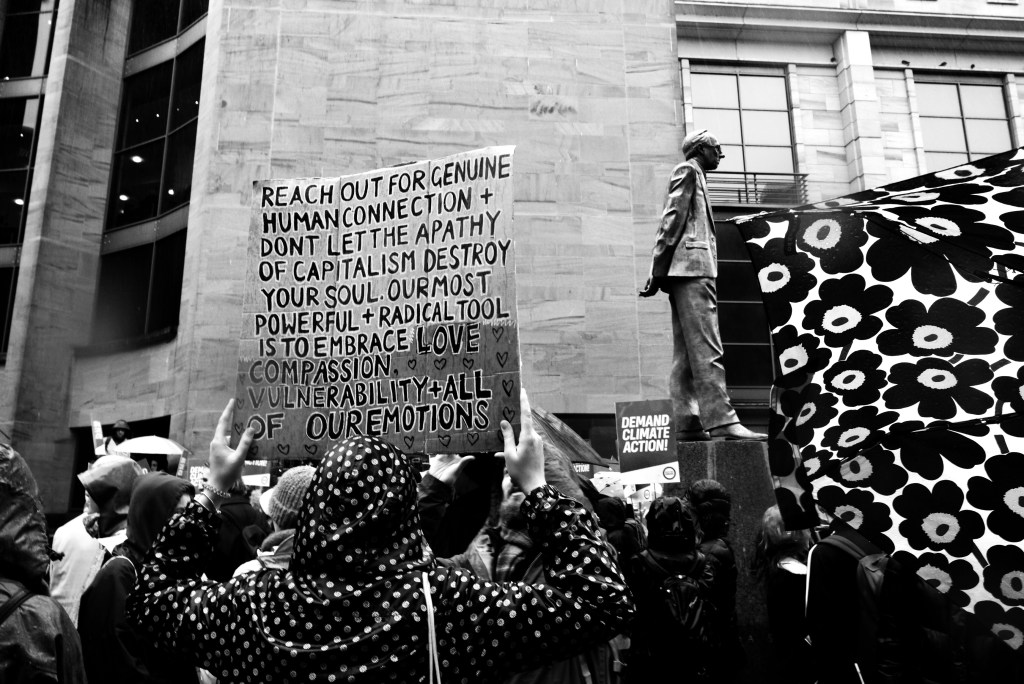 REACH OUT FOR GENUINE
HUMAN CONNECTION +
DONT LET THE APATHY
OF CAPITALISM DESTROY
YOUR SOUL. OUR MOST
POWERFUL + RADICAL TOOL
IS TO EMBRACE LOVE
COMPASSION,
VULNERABILITY + ALL
OF OUR EMOTIONS
DEMAND
CLIMATE
ACTION!